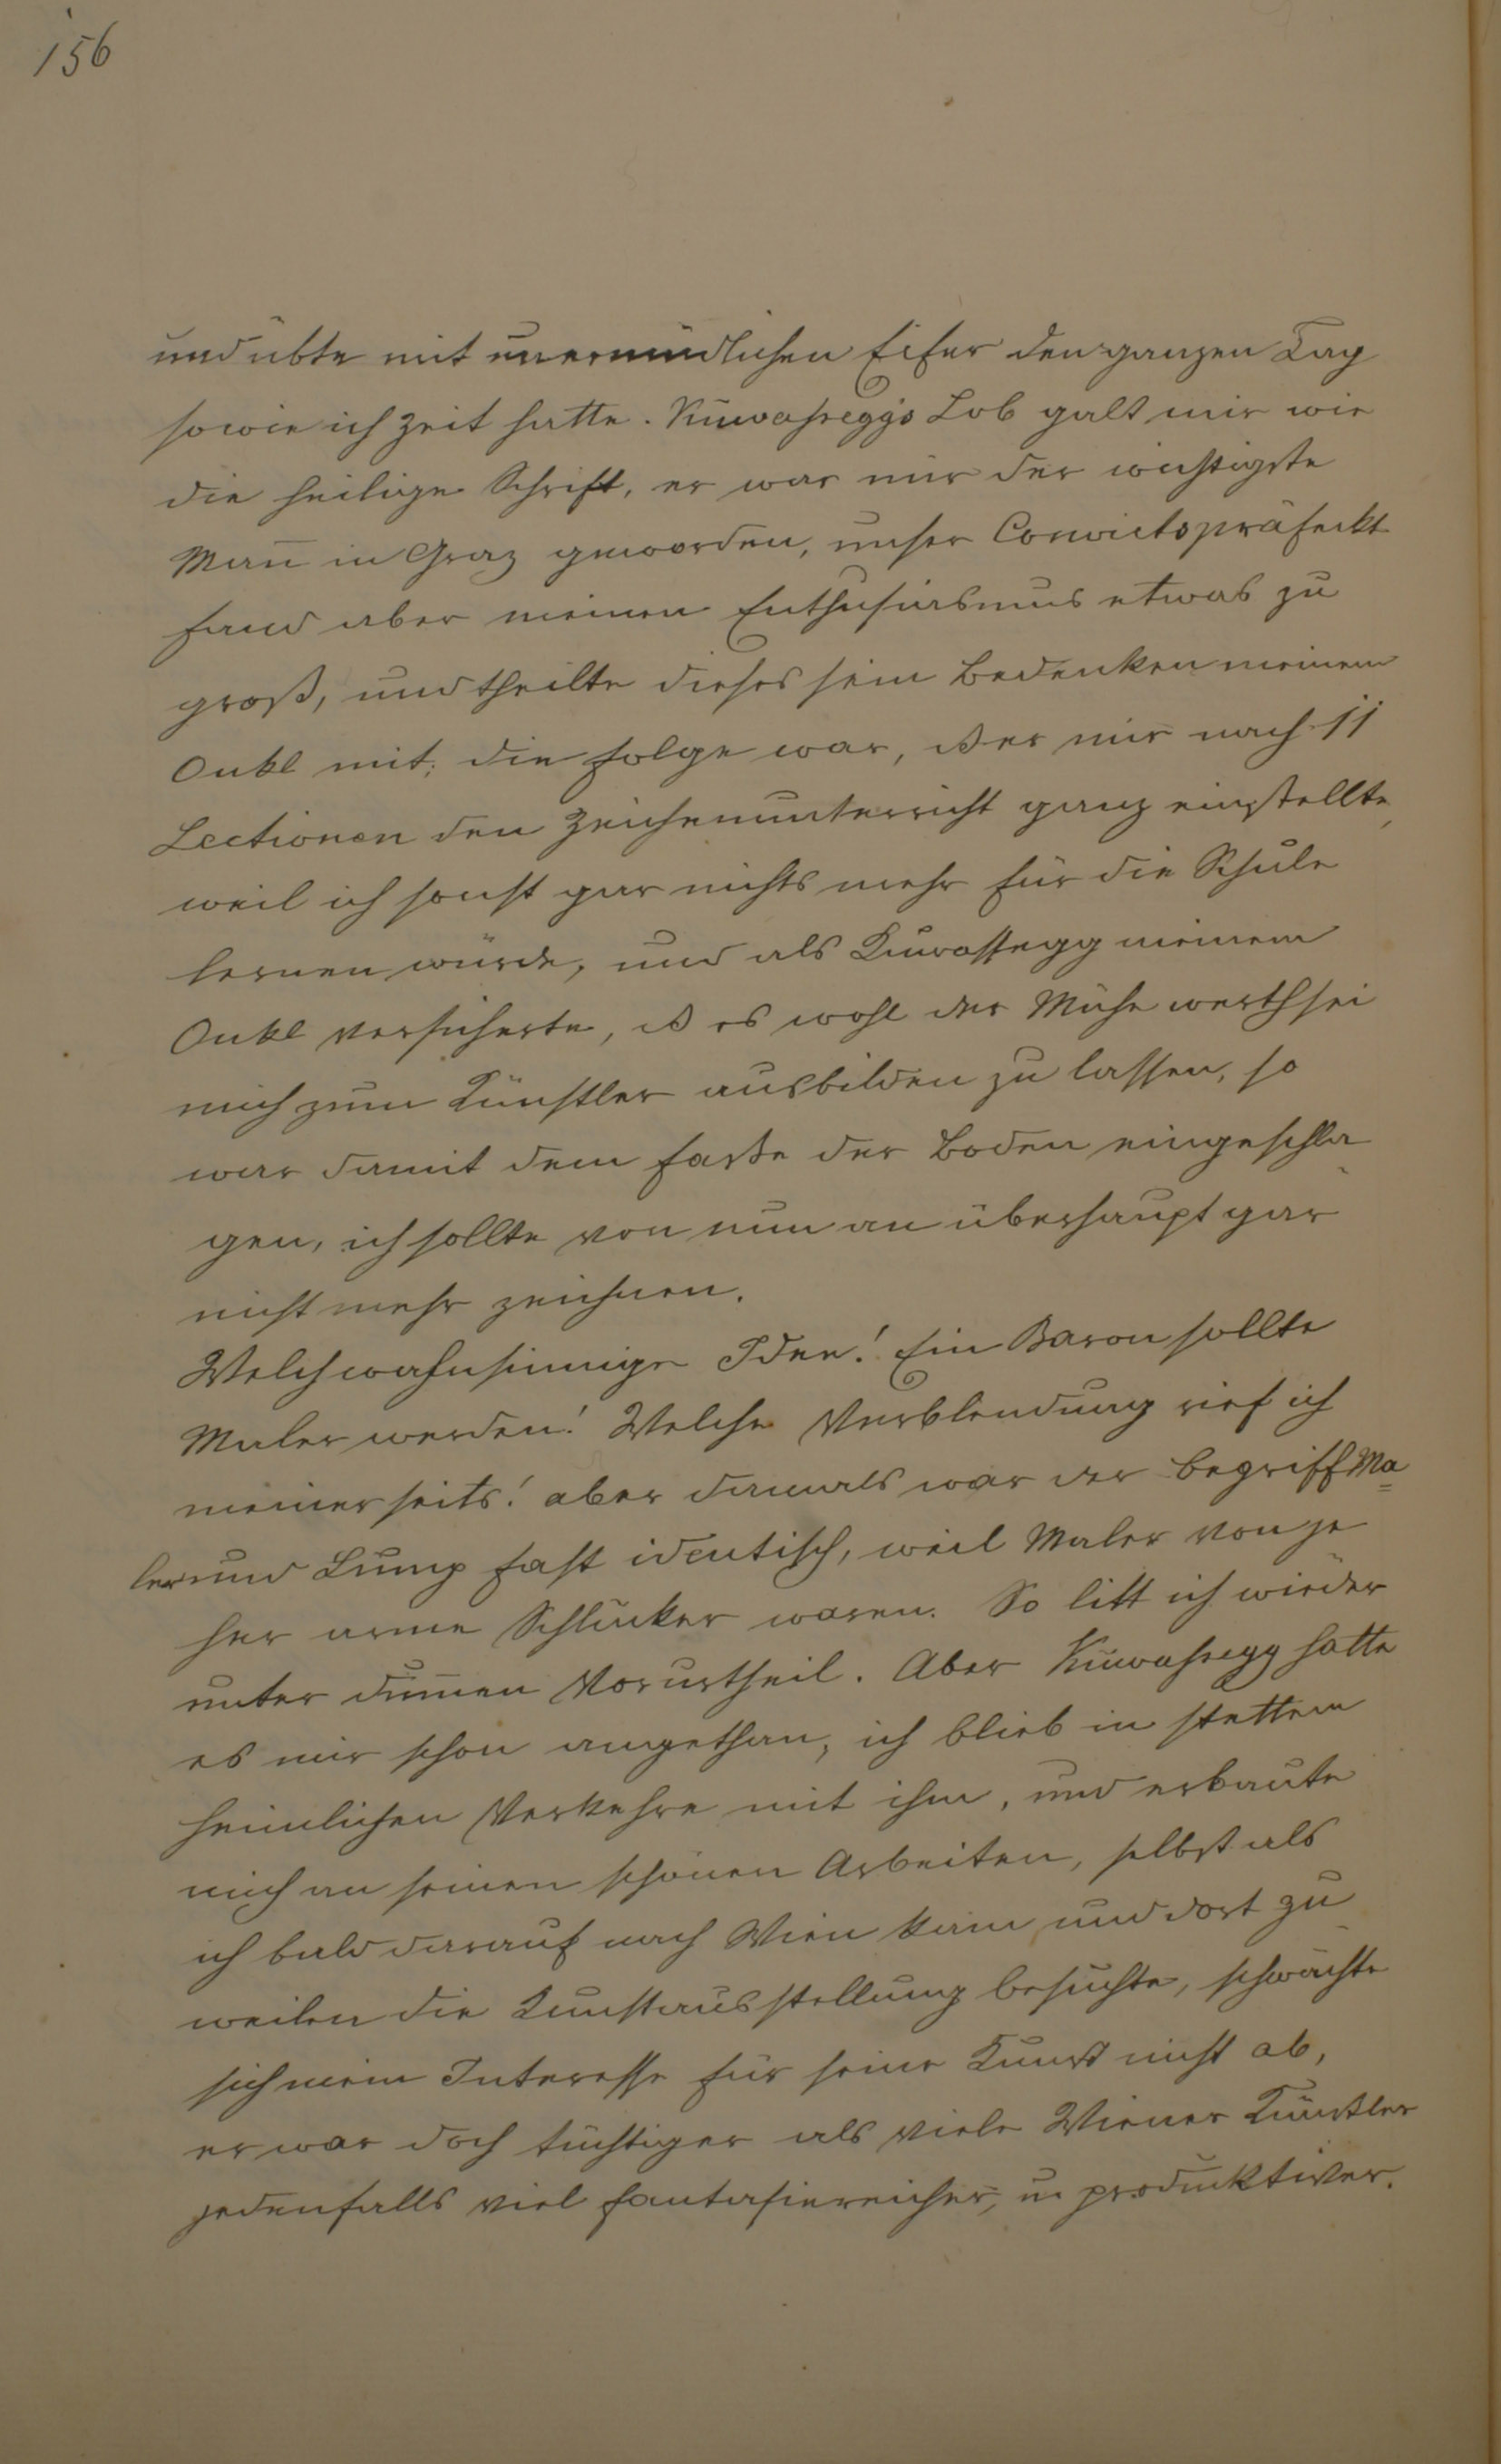 156
und übte mit unermüdlichen Eifer den ganzen Tag
sowie ich Zeit hatte. Kuwaßegg's Lob galt mir wie
die heilige Schrift, er war mir der wichtigste
Man̄ in Graz geworden, unser Convictspräfeckt
fand aber meinen Enthusiasmus etwas zu
groß, und theilte dieses sein Bedenken meinem
Onkl mit; die Folge war, dß er mir nach 11
Lectionen den Zeichenunterricht ganz einstellte,
weil ich sonst gar nichts mehr für die Schule
lernen würde, und als Kuwassegg meinem
Onkl versicherte, dß es wohl der Mühe werth sei
mich zum Künstler ausbilden zu lassen, so
war damit dem Faße der Boden eingeschla
gen, ich sollte von nun an überhaupt gar
nicht mehr zeichnen.
Welch wahnsinnige Idee! Ein Baron sollte
Maler werden! Welche Verblendung rief ich
meinerseits! aber damals war der Begriff Ma=
ler und Lump fast identisch, weil Maler von je
her arme Schlucker waren. So litt ich wieder
unter dum̄en Vorurtheil. Aber Kuwaßegg hatte
es mir schon angethan, ich blieb in stettem
heimlichen Verkehre mit ihm, und erbaute
mich an seinen schönen Arbeiten, selbst als
ich bald darauf nach Wien kam und dort zu
weilen die Kunstausstellung besuchte, schwächte
sich mein Interesse für seine Kunst nicht ab,
er war doch tüchtiger als viele Wiener Künstler
jedenfalls viel fantasiereicher, u. produktiver.